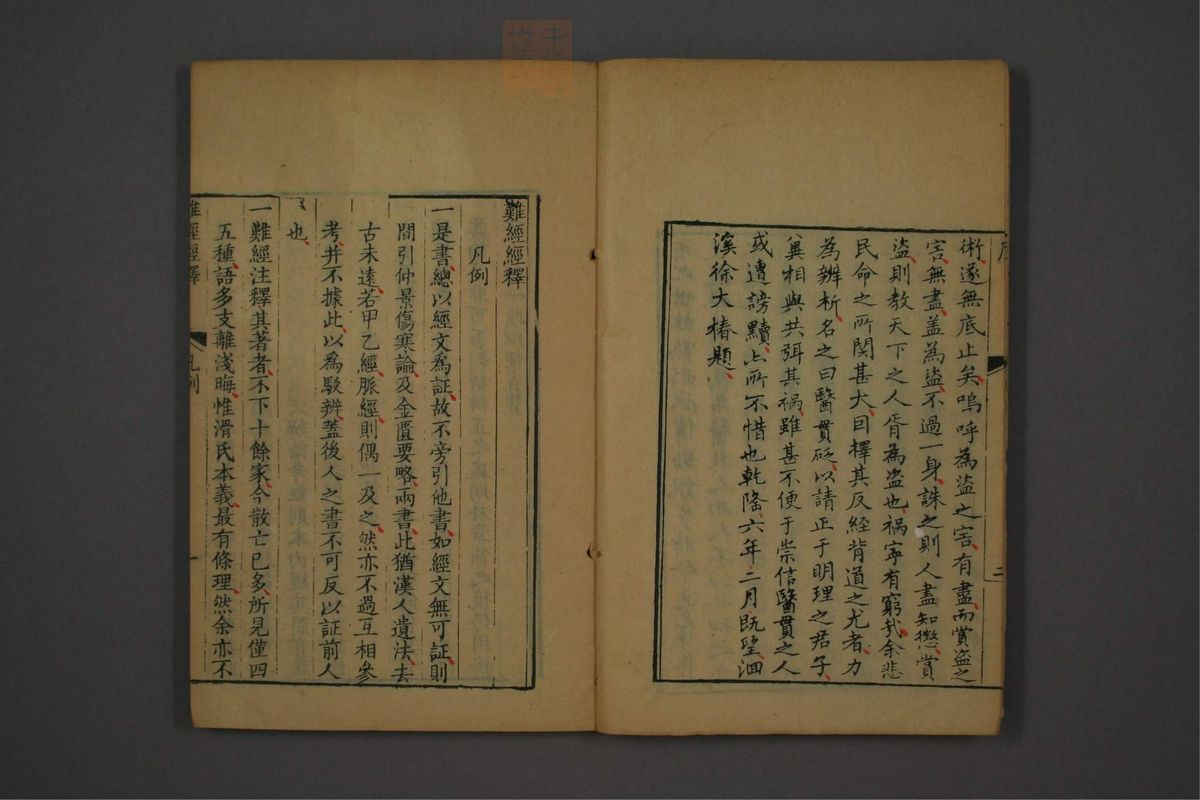 術遂無底止矣嗚呼為盜之害有盡而賞盜之
害無盡蓋為盜不過一身誅之則人盡知懲賞
盜則教天下之人胥為盜也禍寧有窮哉余悲
民命之所関甚大囙擇其反經背道之尤者力
為辨析名之曰醫貫砭以請正于明理之君子
冀相與共弭其禍雖甚不便于崇信醫貫之人
或遭謗黷亦所不惜也乾隆六年二月既望洄
溪徐大椿題
二
難經經釋
凡例
一是書總以經文爲証故不旁引他書如經文無可証則
間引仲景傷寒論及金匱要略兩書此猶漢人遺法去
古未遠若甲乙經脈經則偶一及之然亦不過互相參
考并不據此以爲駁辨蓋後人之書不可反以証前人
也
一難經注釋其著者不下十餘家今散亡已多所見僅四
五種語多支離淺晦惟滑氏本義最有條理然余亦不
難經經釋
凡例
一